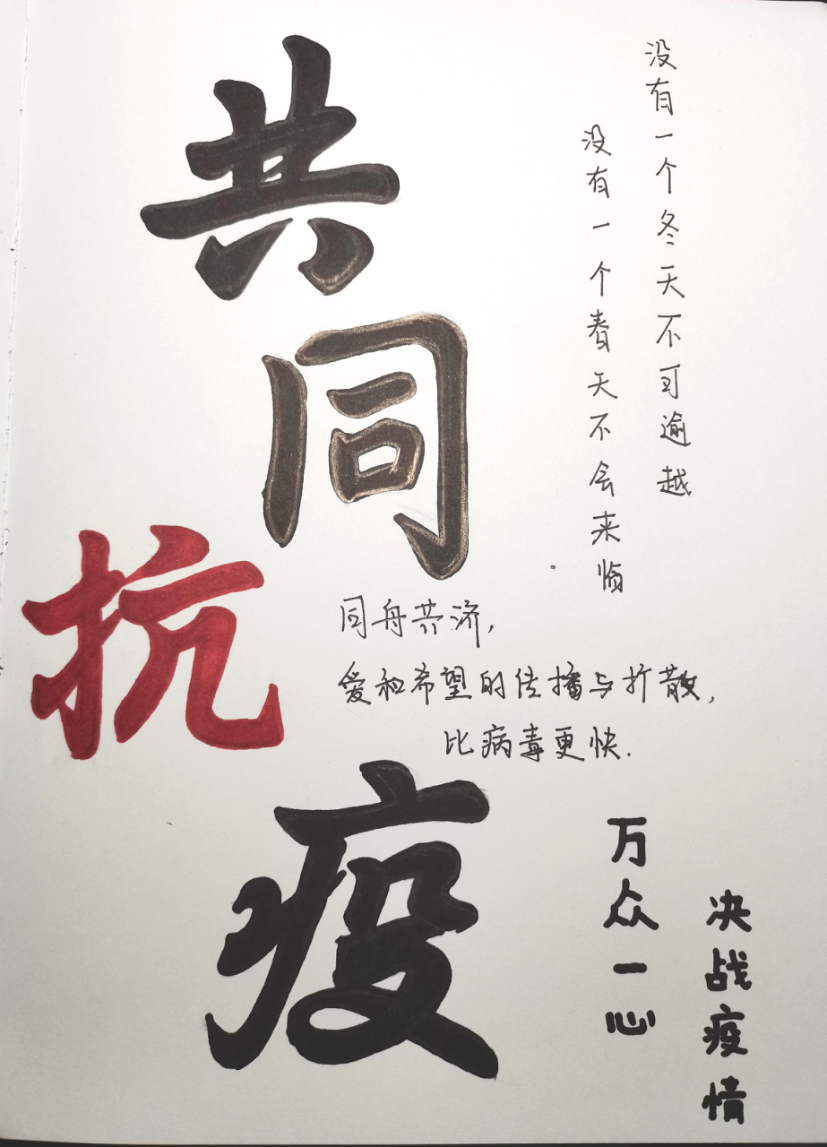 共同抗疫
没有一个冬天不可逾越
没有一个春天不会来临
同舟共济,
爱和希望的传播与扩散,
比病毒更快.
万众一心
决战疫情